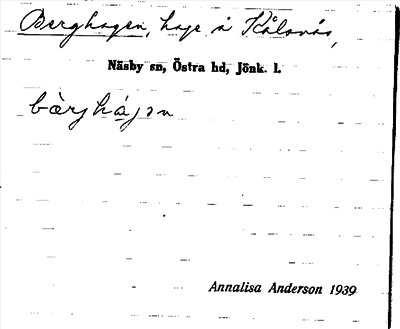 Berghagen, hage å Kålsnäs,
Näsby sn, Östra hd, Jönk. l.
bàrghágən
Annalisa Anderson 1939